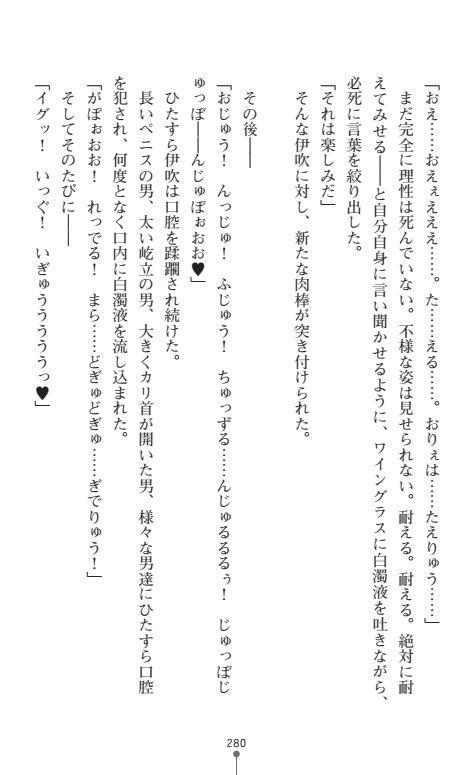 「おえ……おえぇえええ……。た……える……。おりぇは……たえりゅう……」
　まだ完全に理性は死んでいない。不様な姿は見せられない。耐える。耐える。絶対に耐
えてみせる――と自分自身に言い聞かせるように、ワイングラスに白濁液を吐きながら、
必死に言葉を絞り出した。
「それは楽しみだ」
　そんな伊吹に対し、新たな肉棒が突き付けられた。
　その後――
「おじゅう！　んっじゅ！　ふじゅう！　ちゅっずる……んじゅるるるぅ！　じゅっぽじ
ゅっぽ――んじゅぽぉおお♥」
　ひたすら伊吹は口腔を蹂躙され続けた。
　長いペニスの男、太い屹立の男、大きくカリ首が開いた男、様々な男達にひたすら口腔
を犯され、何度となく口内に白濁液を流し込まれた。
「がぽぉおお！　れっでる！　まら……どぎゅどぎゅ……ぎでりゅう！」
　そしてそのたびに――
「イグッ！　いっぐ！　いぎゅうううううっ♥」
280